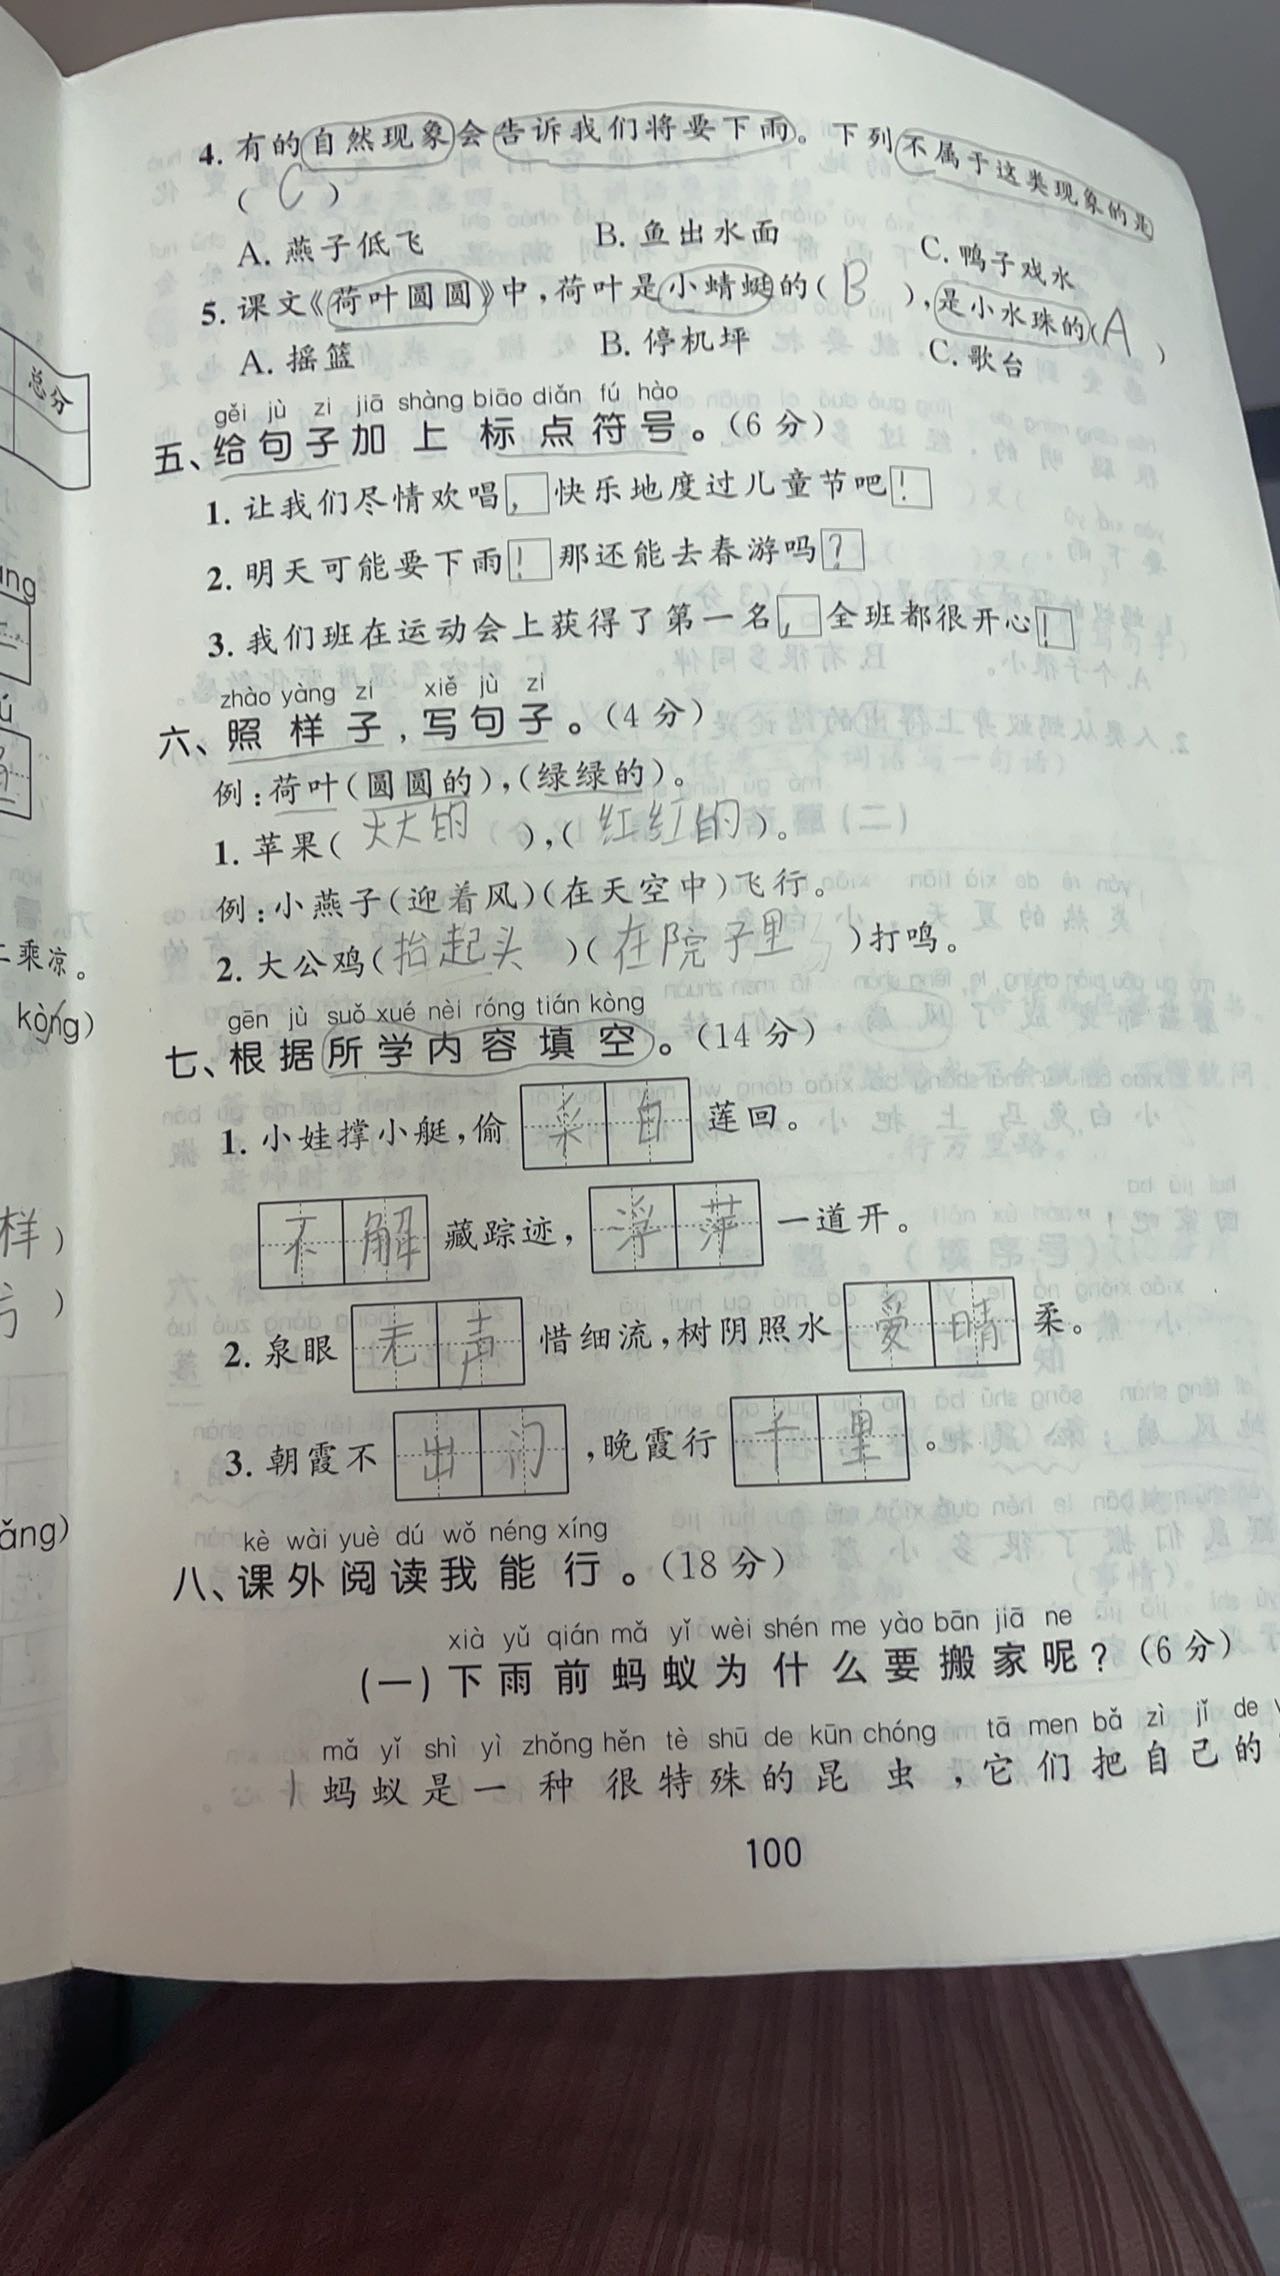 4. 有的自然现象会告诉我们将要下雨。下列不属于这类现象的是
( C )
A. 燕子低飞 B. 鱼出水面 C. 鸭子戏水
5. 课文《荷叶圆圆》中,荷叶是小蜻蜓的( B ),是小水珠的( A )
A. 摇篮 B. 停机坪 C. 歌台
gěi jù zi jiā shàng biāo diǎn fú hào
五、给句子加上标点符号。(6分)
1. 让我们尽情欢唱,快乐地度过儿童节吧!
2. 明天可能要下雨!那还能去春游吗?
3. 我们班在运动会上获得了第一名,全班都很开心!
zhào yàng zi xiě jù zi
六、照样子,写句子。(4分)
例:荷叶(圆圆的),(绿绿的)。
1. 苹果(大大的),(红红的)。
例:小燕子(迎着风)(在天空中)飞行。
2. 大公鸡(抬起头)(在院子里)打鸣。
gēn jù suǒ xué nèi róng tián kòng
七、根据所学内容填空。(14分)
1. 小娃撑小艇,偷采白莲回。
不解藏踪迹,浮萍一道开。
2. 泉眼无声惜细流,树阴照水爱晴柔。
3. 朝霞不出门,晚霞行千里。
kè wài yuè dú wǒ néng xíng
八、课外阅读我能行。(18分)
xià yǔ qián mǎ yǐ wèi shén me yào bān jiā ne
(一)下雨前蚂蚁为什么要搬家呢?(6分)
mǎ yǐ shì yì zhǒng hěn tè shū de kūn chóng tā men bǎ zì jǐ de
1 蚂蚁是一种很特殊的昆虫,它们把自己的
100
总分
ng
乘凉。
kòng)
样)
)
ǎng)